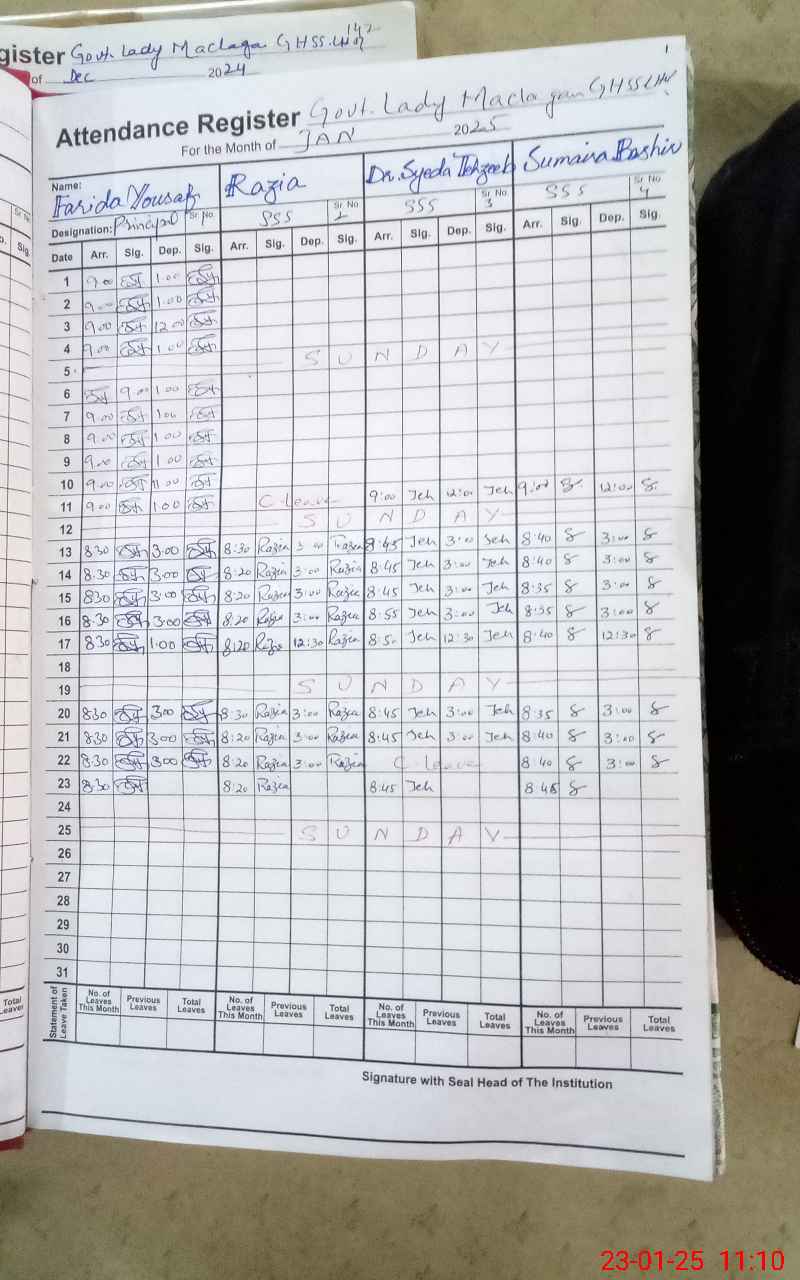 gister Govt. Lady Maclagan GHSS.
of Dec 2024
1
Attendance Register Govt. Lady Maclagan GHSS LHR
For the Month of JAN 2025
Name: Farida Yousaf Razia Dr. Syeda Tehzeeb Sumaira Bashir
Designation: Principal Sr. No. SSS Sr. No. 2 SSS Sr. No. 3 SSS Sr. No. 4
Date Arr. Sig. Dep. Sig. Arr. Sig. Dep. Sig. Arr. Sig. Dep. Sig. Arr. Sig. Dep. Sig.
1 9.00 1.00
2 9.00 1.00
3 9.00 12.00
4 9.00 1.00
5 S U N D A Y
6 9.00 1.00
7 9.00 1.00
8 9.00 1.00
9 9.00 1.00
10 9.00 11.00
11 9.00 1.00 C. leave 9:00 Teh 12:00 Teh 9:00 S 12:00 S
12 S U N D A Y
13 8.30 3.00 8:30 Razia 3:00 Razia 8:45 Teh 3:00 Teh 8:40 S 3:00 S
14 8.30 3.00 8:20 Razia 3:00 Razia 8:45 Teh 3:00 Teh 8:40 S 3:00 S
15 8.30 3.00 8:20 Razia 3:00 Razia 8:45 Teh 3:00 Teh 8:35 S 3:00 S
16 8.30 3.00 8:20 Razia 3:00 Razia 8:55 Teh 3:00 Teh 8:35 S 3:00 S
17 8.30 1.00 8:20 Razia 12:30 Razia 8:50 Teh 12:30 Teh 8:40 S 12:30 S
18
19 S U N D A Y
20 8.30 3.00 8:30 Razia 3:00 Razia 8:45 Teh 3:00 Teh 8:35 S 3:00 S
21 8.30 3.00 8:20 Razia 3:00 Razia 8:45 Teh 3:00 Teh 8:40 S 3:00 S
22 8.30 3.00 8:20 Razia 3:00 Razia C. leave 8:40 S 3:00 S
23 8.30 8:20 Razia 8:45 Teh 8:45 S
24
25 S U N D A Y
26
27
28
29
30
31
Statement of Leave Taken No. of Leaves This Month Previous Leaves Total Leaves No. of Leaves This Month Previous Leaves Total Leaves No. of Leaves This Month Previous Leaves Total Leaves No. of Leaves This Month Previous Leaves Total Leaves
Total Leaves
Signature with Seal Head of The Institution
23-01-25 11:10